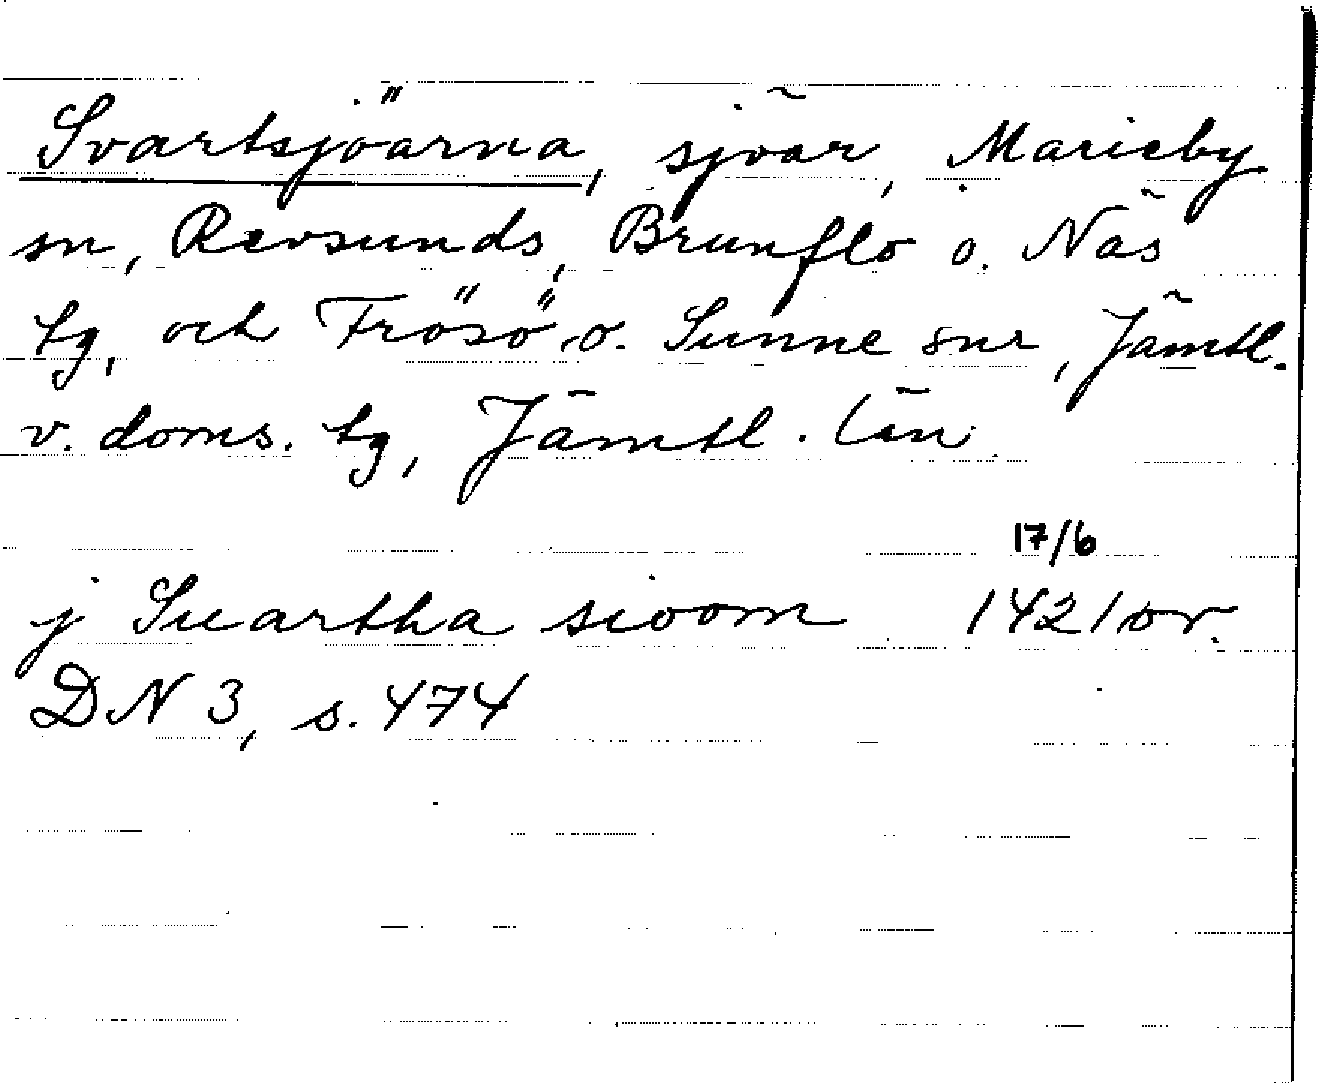 Svartsjöarna, sjöar, Marieby
sn, Revsunds, Brunflo o. Näs
tg, och Frösö o. Sunne snr, Jämtl.
v. doms. tg, Jämtl. län.
17/6
j Suartha sioom 1421 or.
DN 3, s. 474